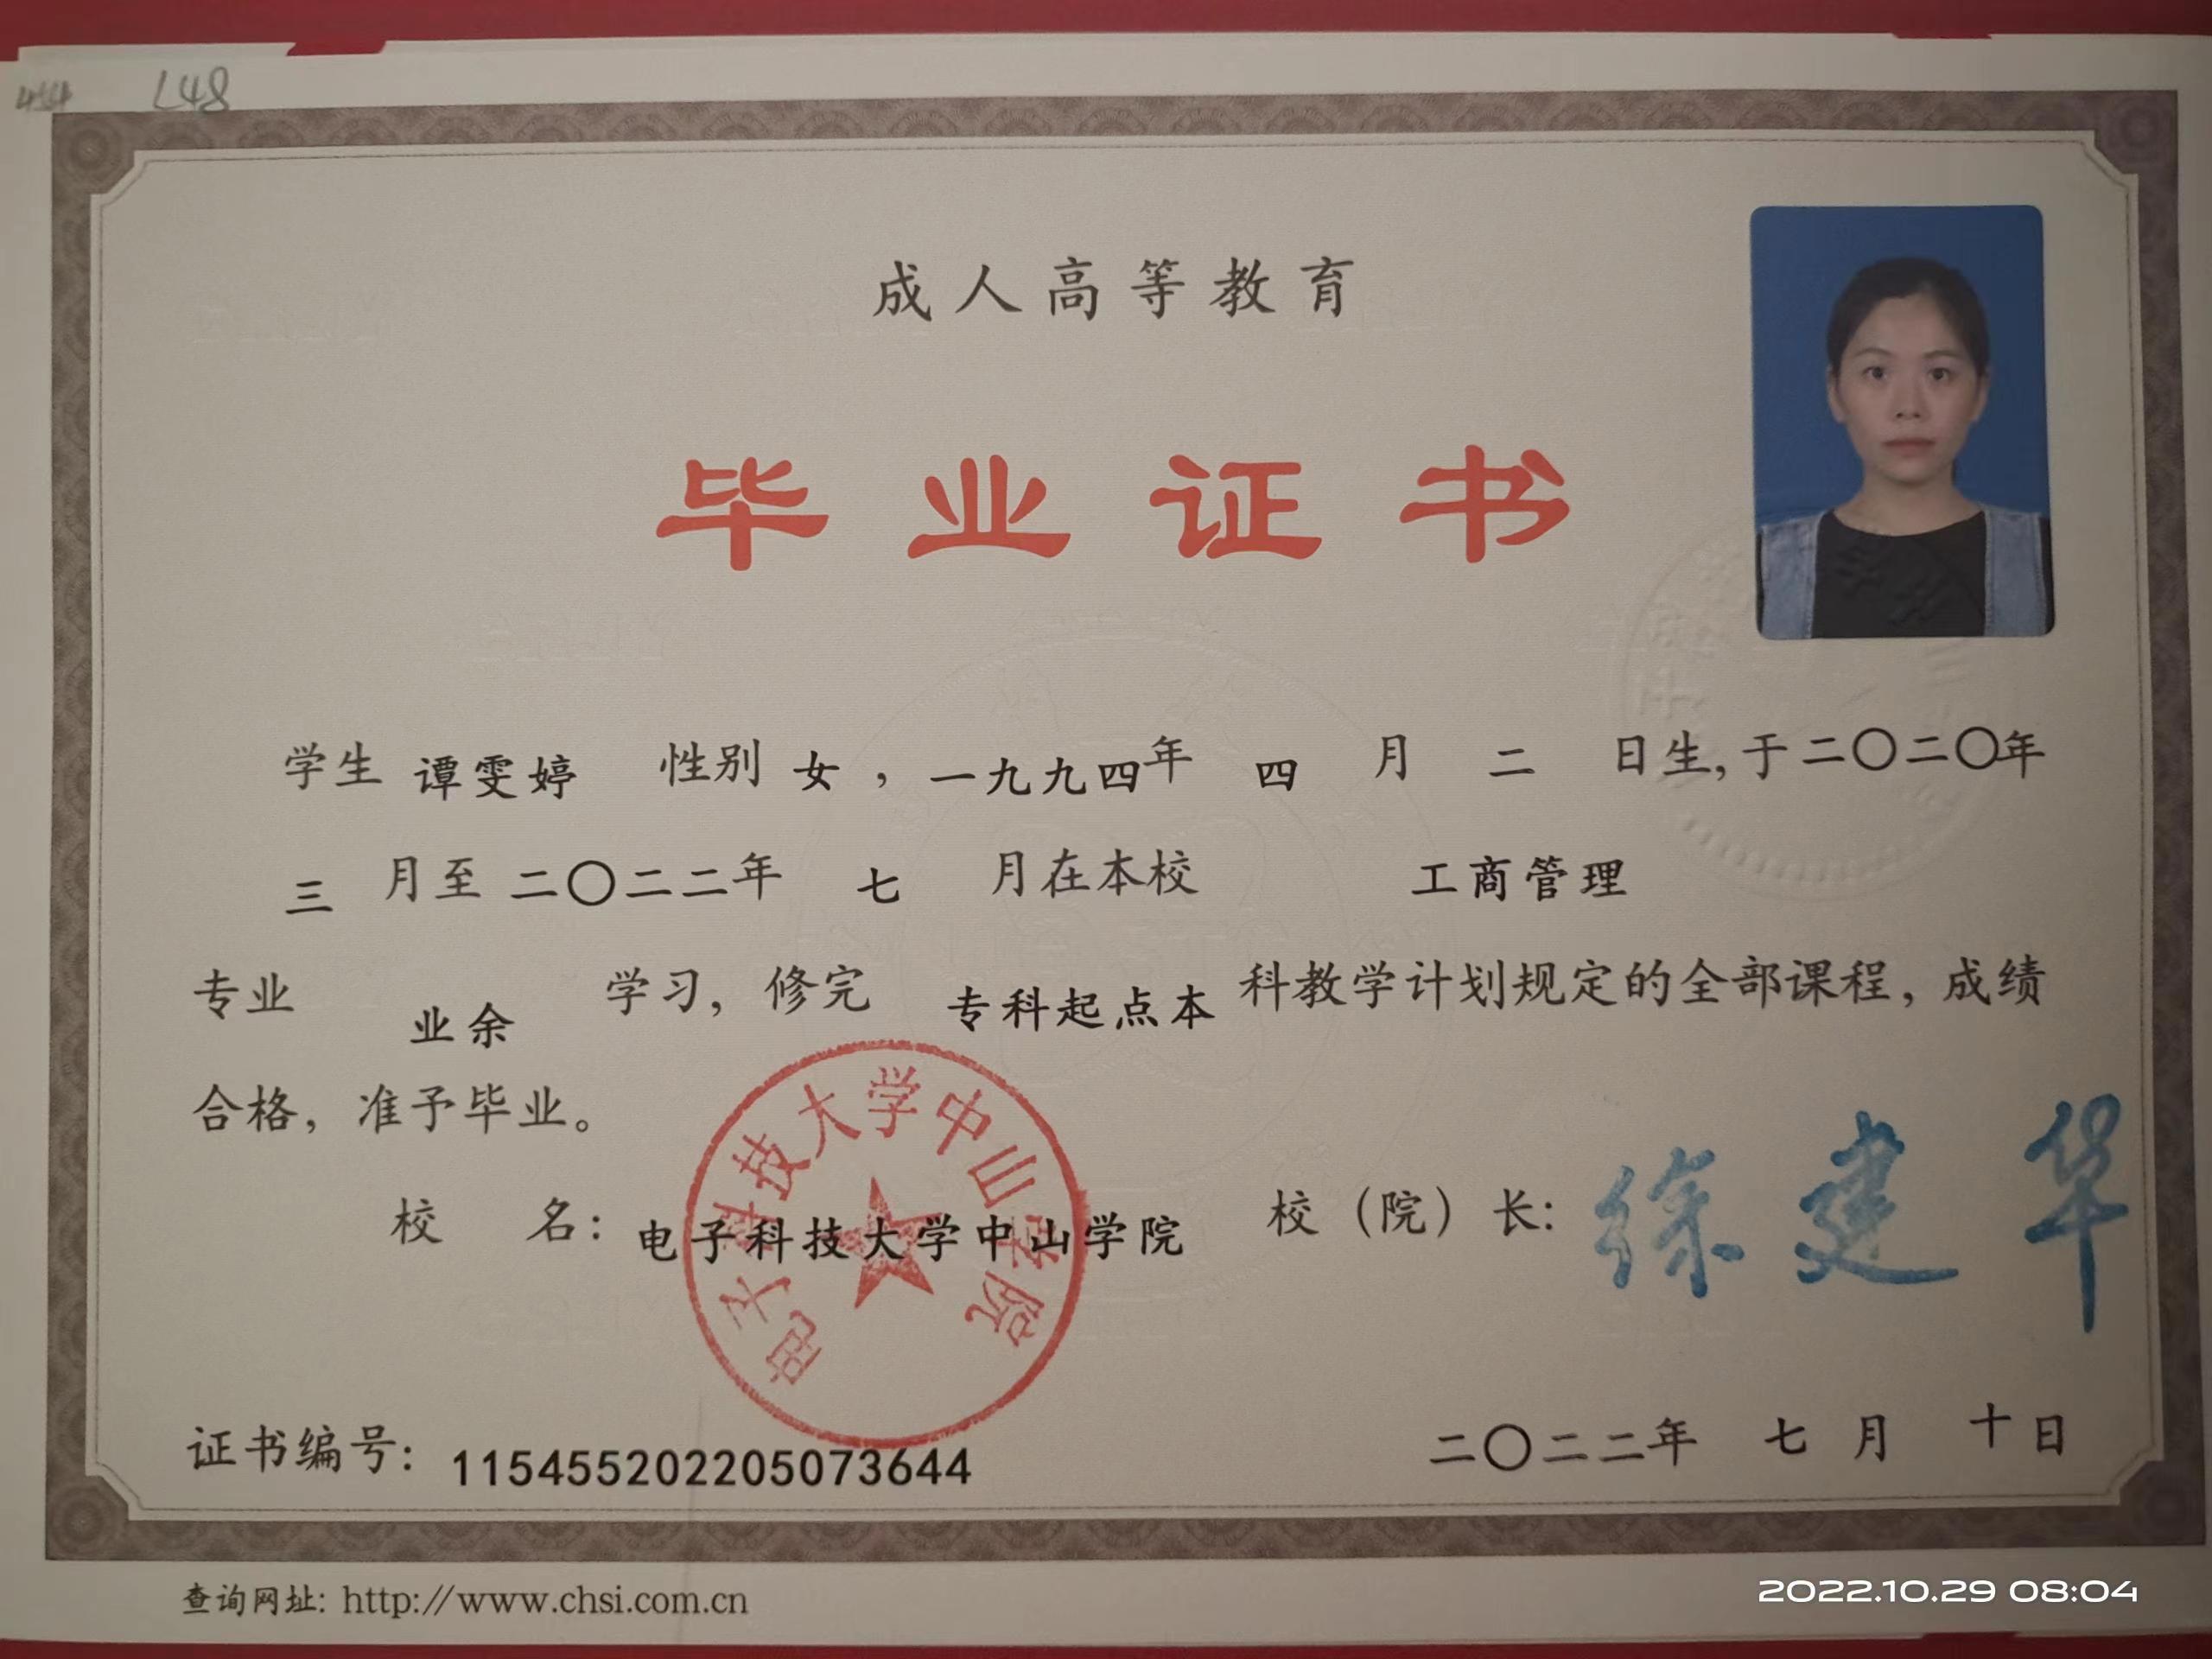 L48
成人高等教育
毕业证书
学生 谭雯婷 性别 女 ，一九九四年 四 月 二 日生，于二〇二〇年
三 月至 二〇二二年 七 月在本校 工商管理
专业 业余 学习，修完 专科起点本 科教学计划规定的全部课程，成绩
合格，准予毕业。
校 名：电子科技大学中山学院 校（院）长：徐建华
电子科技大学中山学院
二〇二二年 七 月 十 日
证书编号：115455202205073644
查询网址：http://www.chsi.com.cn
2022.10.29 08:04